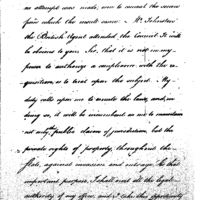 an attempt was made, soon to arrest the snow
from which the result came. Mr. Johnston
the British Agent attended the Council. It will
be obvious to you Sir, that it is not in my
power to authorize a compliance with the re-
quisition, as to treat upon the subject. My
duty calls upon me to execute the laws, and, in
doing so, it will be incumbent on me to maintain
not only the public claims of jurisdiction, but the
private rights of property throughout the
State, against invasion and outrage. To this
important purpose, I shall exert all the legal
authority of my office, and I take this opportunity